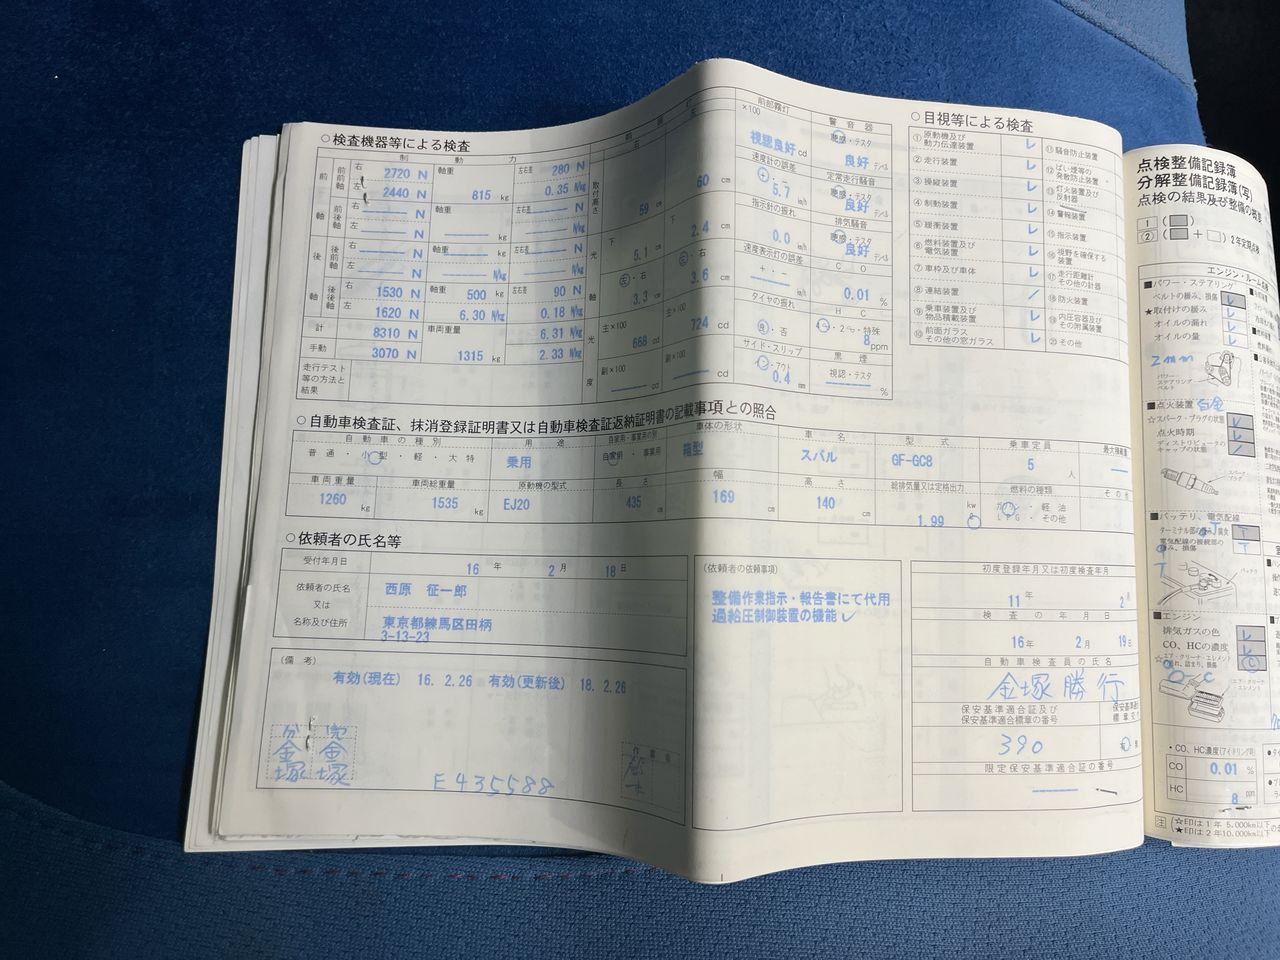 ○検査機器等による検査
制動力
前前軸 右 2720 N 軸重 左右差 280 N
左 2440 N 815 kg 0.35 N/kg
前後軸 右 N 軸重 左右差 N
左 N kg N/kg
後前軸 右 N 軸重 左右差 N
左 N kg N/kg
後後軸 右 1530 N 軸重 500 kg 左右差 90 N
左 1620 N 6.30 N/kg 0.18 N/kg
計 8310 N 車両重量 6.31 N/kg
手動 3070 N 1315 kg 2.33 N/kg
走行テスト等の方法と結果
取付高さ 59 60 cm
光軸 下 5.1 cm 下 2.4 cm
左・右 3.3 cm 左・右 3.6 cm
光度 主×100 668 cd 主×100 724 cd
副×100 cd 副×100 cd
前部霧灯
×100
視認良好 cd
速度計の誤差
+・-
5.7 km/h
指示針の振れ
0.0 km/h
速度表示灯の誤差
+・-
km/h
タイヤの振れ
良・否
サイド・スリップ
イン・アウト
0.4 mm
警音器
聴感・テスタ
良好 デシベル
定常走行騒音
聴感・テスタ
良好 デシベル
排気騒音
聴感・テスタ
良好 デシベル
CO
0.01 %
HC
4・2・特殊
8 ppm
黒煙
視認・テスタ
%
○目視等による検査
① 原動機及び動力伝達装置 レ
② 走行装置 レ
③ 操縦装置 レ
④ 制動装置 レ
⑤ 緩衝装置 レ
⑥ 燃料装置及び電気装置 レ
⑦ 車枠及び車体 レ
⑧ 連結装置 /
⑨ 乗車装置及び物品積載装置 レ
⑩ 前面ガラスその他の窓ガラス レ
⑪ 騒音防止装置
⑫ ばい煙等の発散防止装置
⑬ 灯火装置及び反射器
⑭ 警報装置
⑮ 指示装置
⑯ 視野を確保する装置
⑰ 走行距離計その他の計器
⑱ 防火装置
⑲ 内圧容器及びその附属装置
⑳ その他
○自動車検査証、抹消登録証明書又は自動車検査証返納証明書の記載事項との照合
自動車の種別 用途 自家用・事業用の別 車体の形状 車名 型式 乗車定員 最大積載量
普通・小型・軽・大特 乗用 自家用・事業用 箱型 スバル GF-GC8 5 人
車両重量 車両総重量 原動機の型式 長さ 幅 高さ 総排気量又は定格出力 燃料の種類 その他
1260 kg 1535 kg EJ20 435 cm 169 cm 140 cm 1.99 kw ガソリン・軽油 LPG・その他
○依頼者の氏名等
受付年月日 16 年 2 月 18 日
依頼者の氏名 西原 征一郎
又は
名称及び住所 東京都練馬区田柄
3-13-23
(備考)
有効(現在) 16. 2.26 有効(更新後) 18. 2.26
分 完
金塚 金塚
E435588
(依頼者の依頼事項)
整備作業指示・報告書にて代用
過給圧制御装置の機能 レ
初度登録年月又は初度検査年月
11 年 2 月
検査の年月日
16年 2月 19日
自動車検査員の氏名
金塚 勝行
保安基準適合証及び保安基準適合標章の番号
390
限定保安基準適合証の番号
点検整備記録簿
分解整備記録簿(写)
点検の結果及び整備の概要
1 (
② ( + ) 2年定期点検
エンジン・ルーム
■パワー・ステアリング
ベルトの緩み、損傷 レ
★取付けの緩み レ
オイルの漏れ レ
オイルの量 レ
2mm
パワー・ステアリング ベルト
■点火装置 白金
☆スパーク・プラグの状態 レ
点火時期 レ
ディストリビュータのキャップの状態 /
スパーク・プラグ
■バッテリ、電気配線
ターミナル部の緩み、腐食 T
電気配線の接続部の緩み、損傷 T
バッテリ
■エンジン
排気ガスの色 レ
CO、HCの濃度 レ
☆エア・クリーナ・エレメントの汚れ、詰まり、損傷 C
エア・クリーナ・エレメント
・CO、HC濃度(アイドリング時)
CO 0.01 %
HC 8 ppm
注 (☆印は1年 5,000km以下の
★印は2年10,000km以下